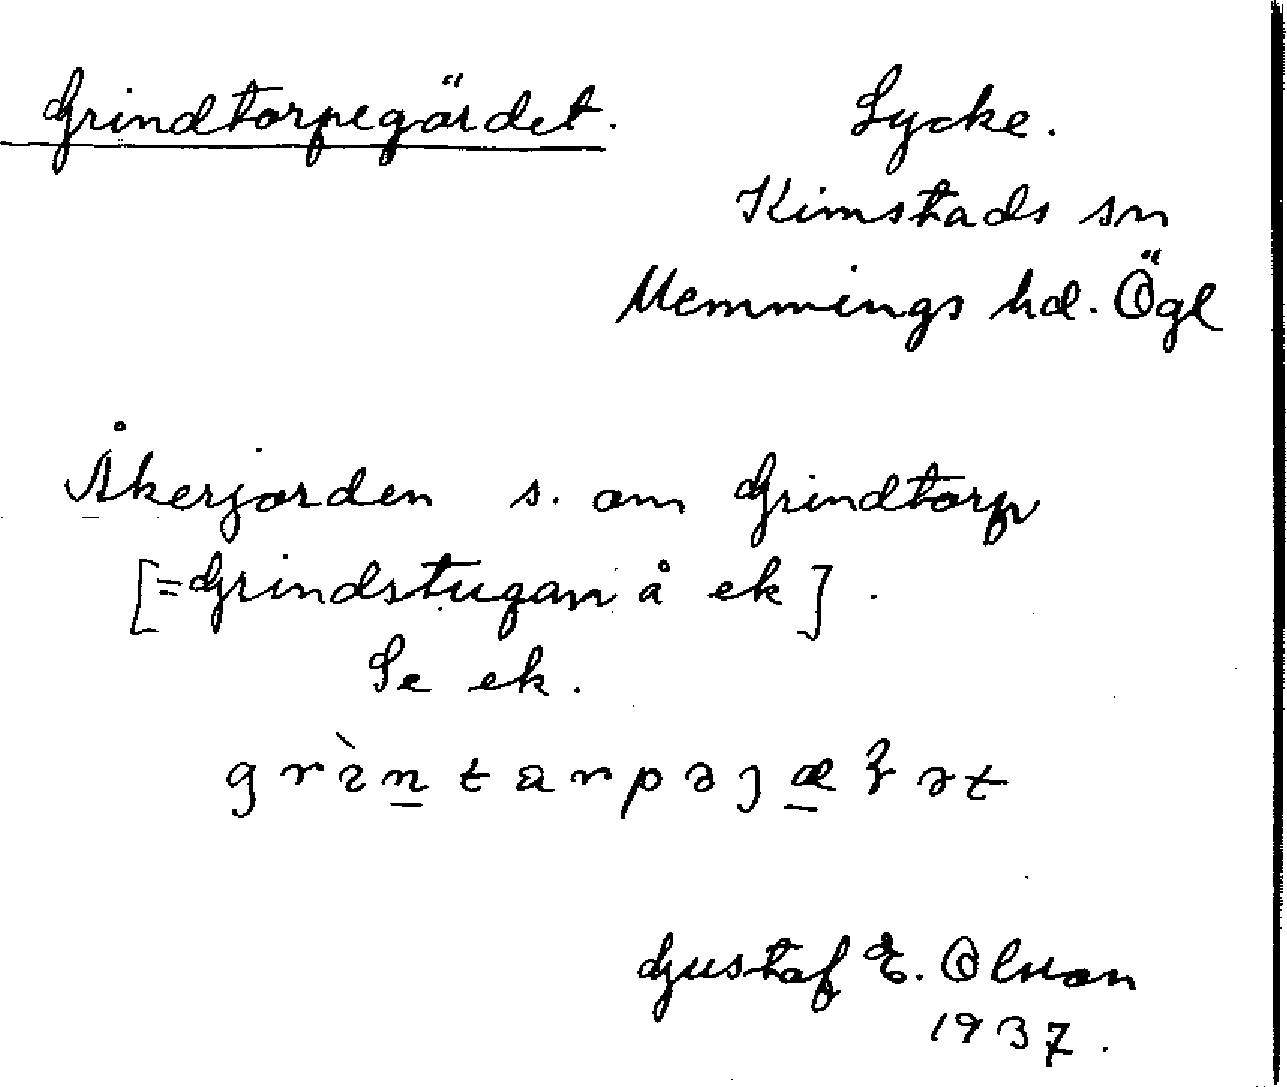 Grindtorpegärdet. Lycke.
Kimstads sn
Memmings hd. Ögl
Åkerjorden s. om Grindtorp
[=Grindstugan å ek].
Se ek.
Gustaf E. Olsson
1937.